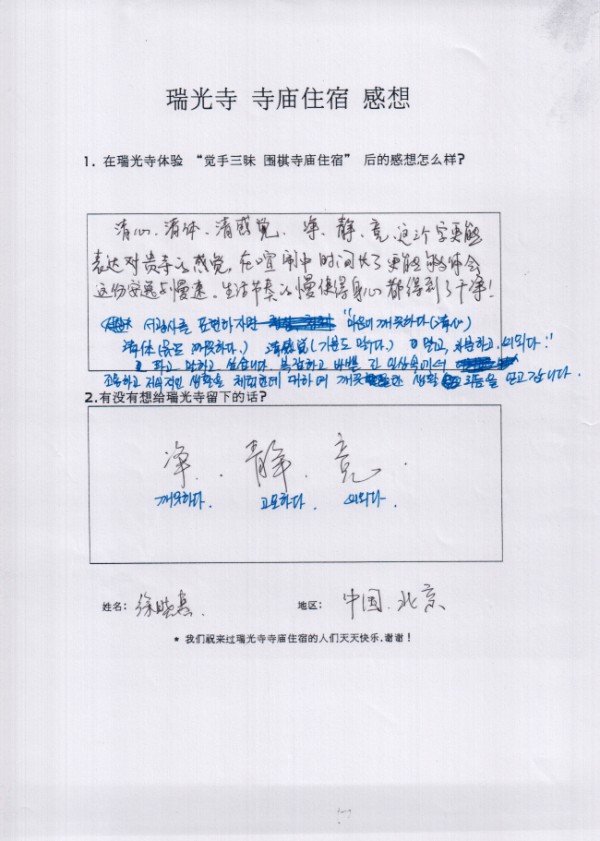 瑞光寺 寺庙住宿 感想
1. 在瑞光寺体验 “觉手三昧 围棋寺庙住宿” 后的感想怎么样?
清心、清体、清感觉. 净、静、竞 这个字更能
表达对贵寺的感觉, 在喧闹中时间长了更能够体会
这份安逸与慢速. 生活节奏的慢使得身心都得到了干净!
서광사를 표현하자면 "마음이 깨끗하다(清心)
清体(몸도 깨끗하다.) 清感觉(기분도 맑다.) 맑고, 하고, 외롭다."
라고 말하고 싶습니다. 복잡하고 바쁜 긴 일상속에서
조용하고 지속적인 생활을 체험한데 대하여 깨끗한 생활 리듬을 얻고 갑니다.
2.有没有想给瑞光寺留下的话?
净. 静. 竞.
깨끗하다. 고요하다. 외롭다.
姓名: 徐 地区: 中国. 北京
* 我们祝来过瑞光寺寺庙住宿的人们天天快乐.谢谢!